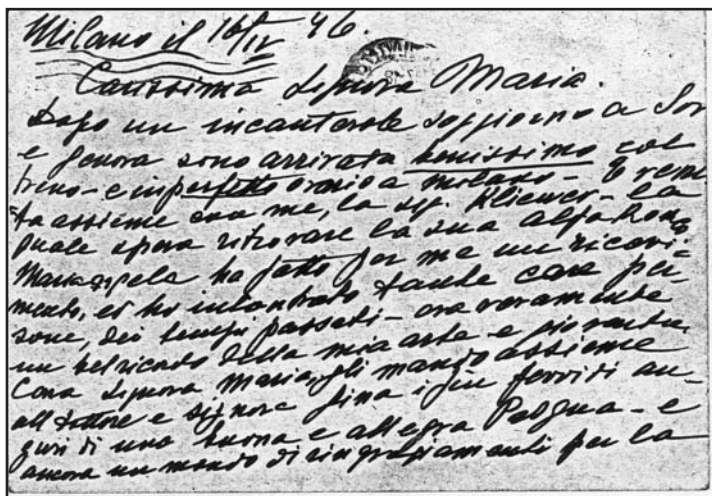 Milano il 16/IV 46.
Carissima Signora Maria.
Dopo un incantevole soggiorno a Sor
e Genova sono arrivata benissimo col
treno - e in perfetto orario a Milano - E venu
ta assieme con me, la sig. Kliewer - la
quale spera ritrovare la sua
Mariangela ha fatto per me un ricevi=
mento, ed ho incontrato tante care per
sone, dei tempi passati - era veramente
un bel ricordo della mia arte e gioventù.
Cara Signora Maria, gli mando assieme
all dottore e signora Lina i più fervidi au-
guri di una buona e allegra Pasqua - e
ancora un mondo di ringraziamenti per la